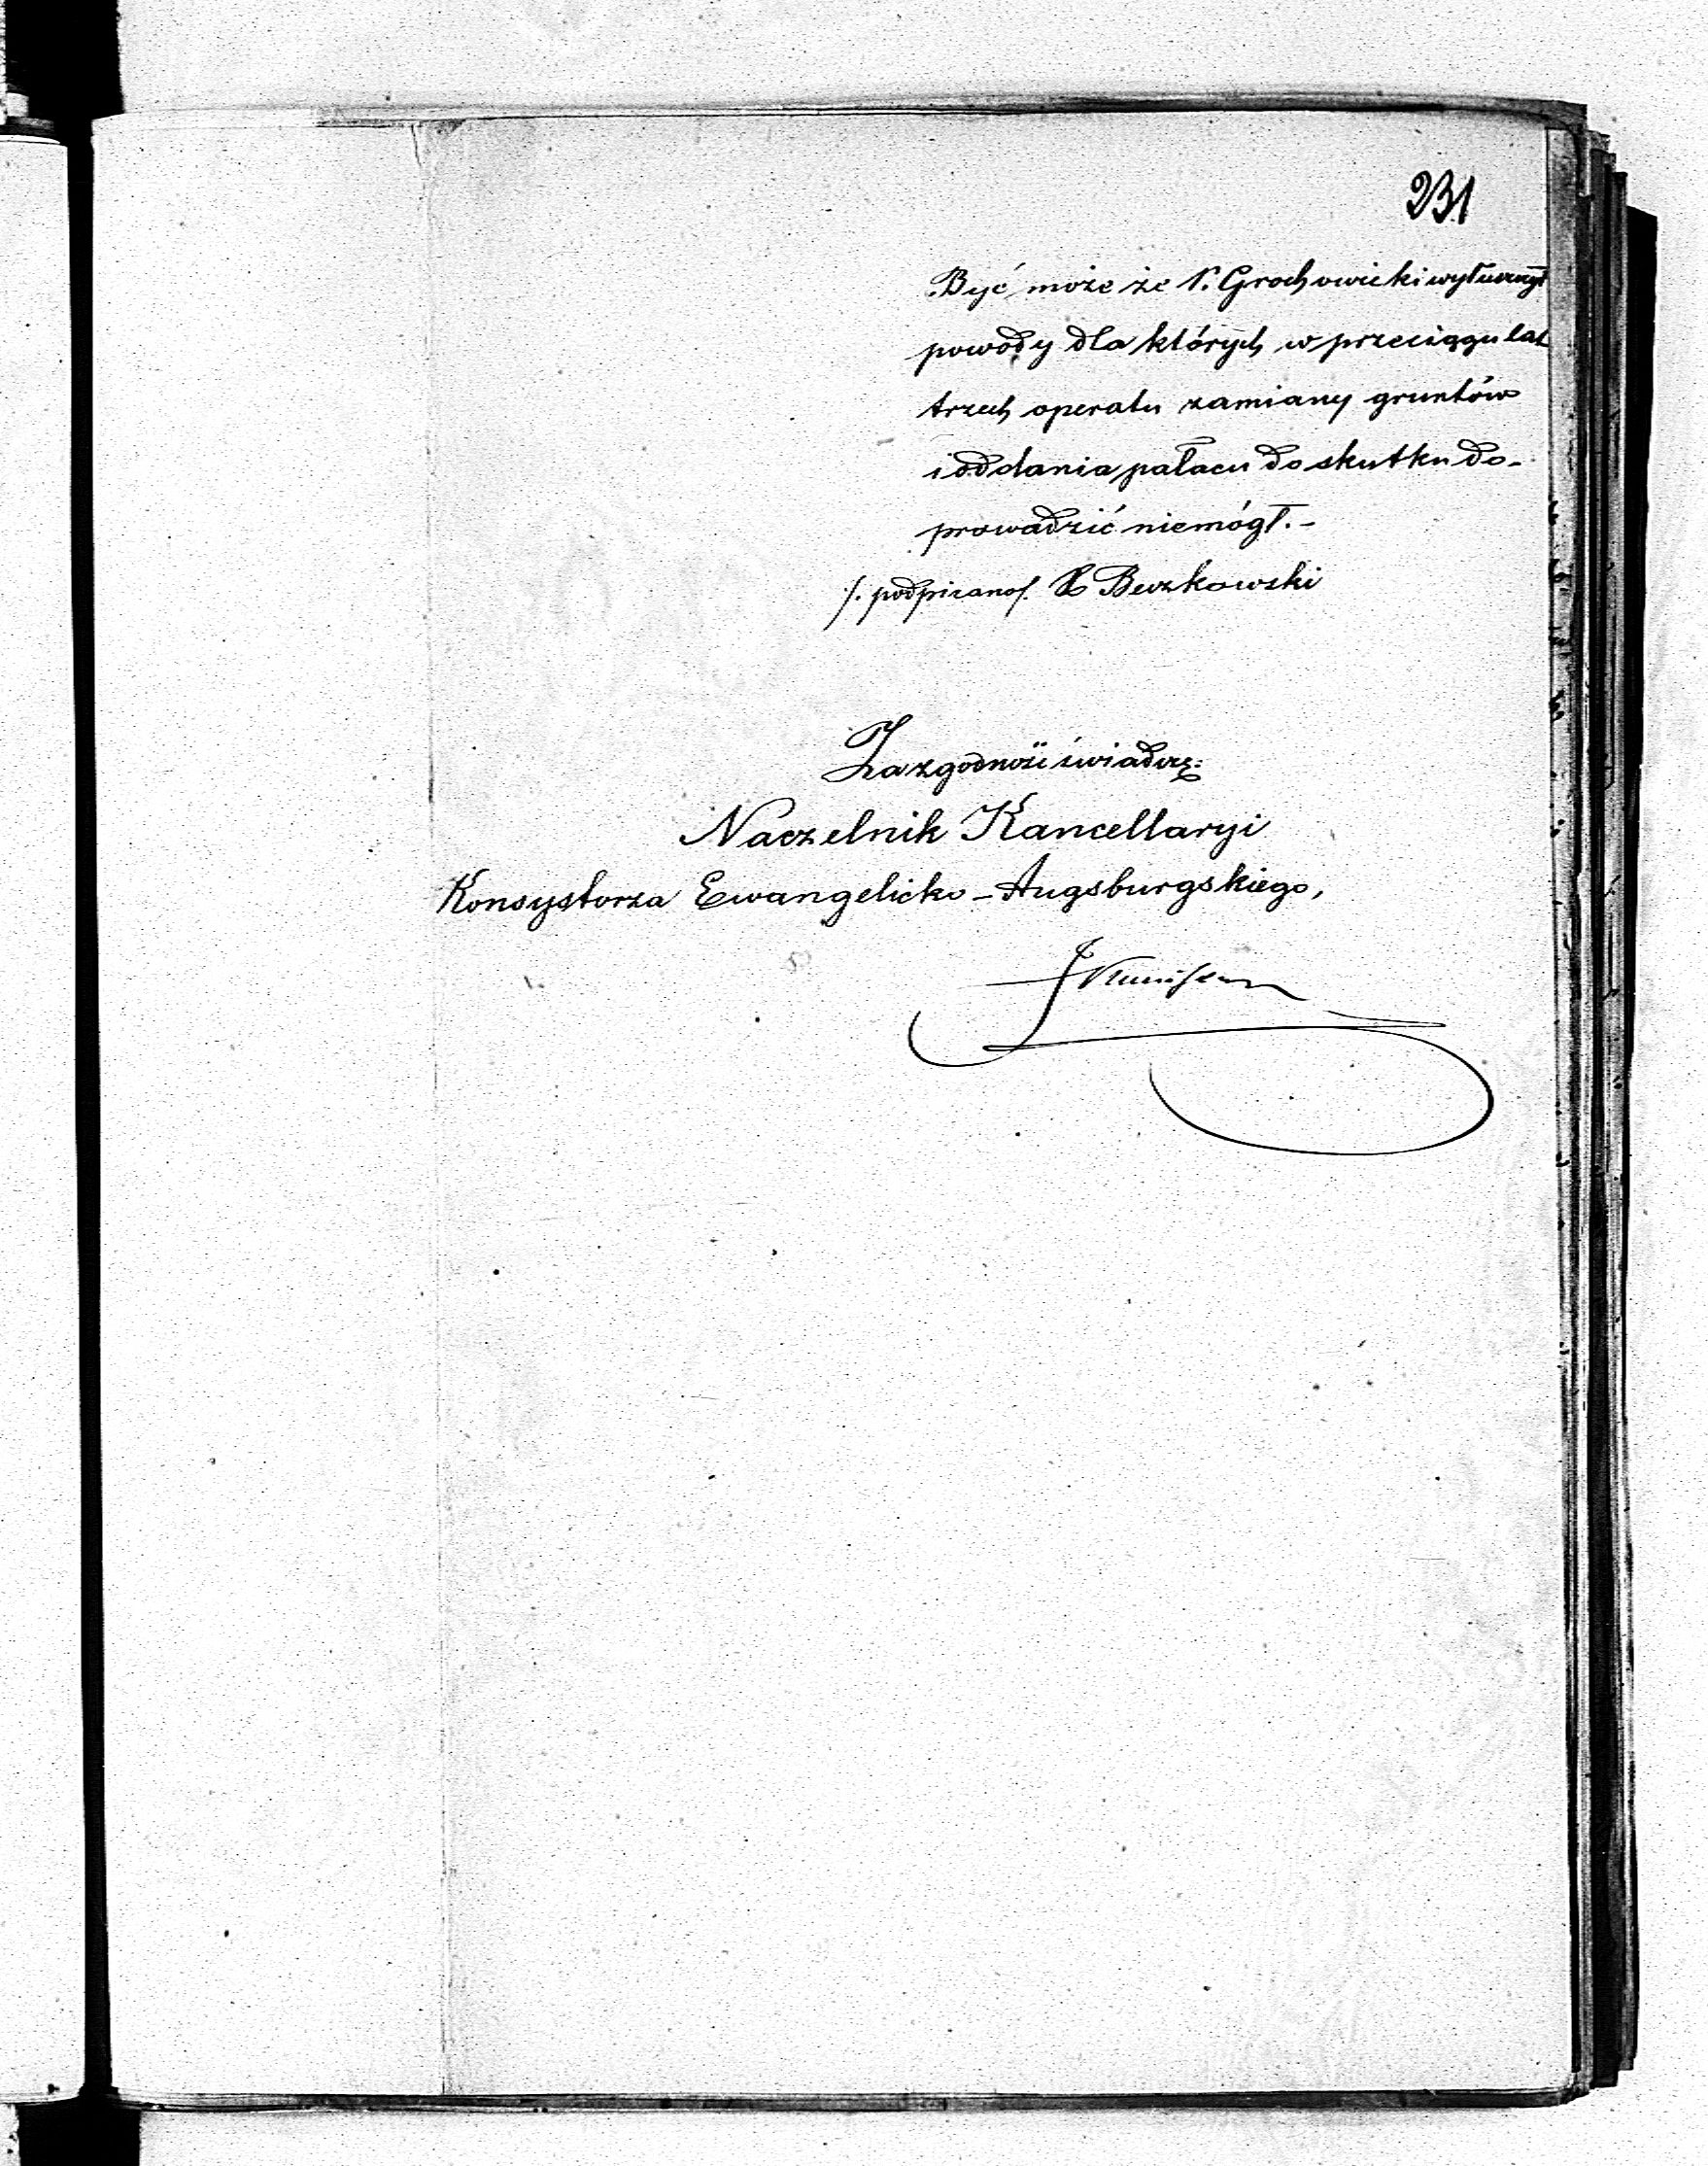 231
Być może że P. Grochowicki wyłuszczył
powody dla których w przeciągu lat
trzech operatu zamiany gruntów
i oddania pałacu do skutku do-
prowadzić niemógł. -
/. podpisano/. Beczkowski
Za zgodność świadczę:
Naczelnik Kancellaryi
Konsystorza Ewangelicko-Augsburgskiego,